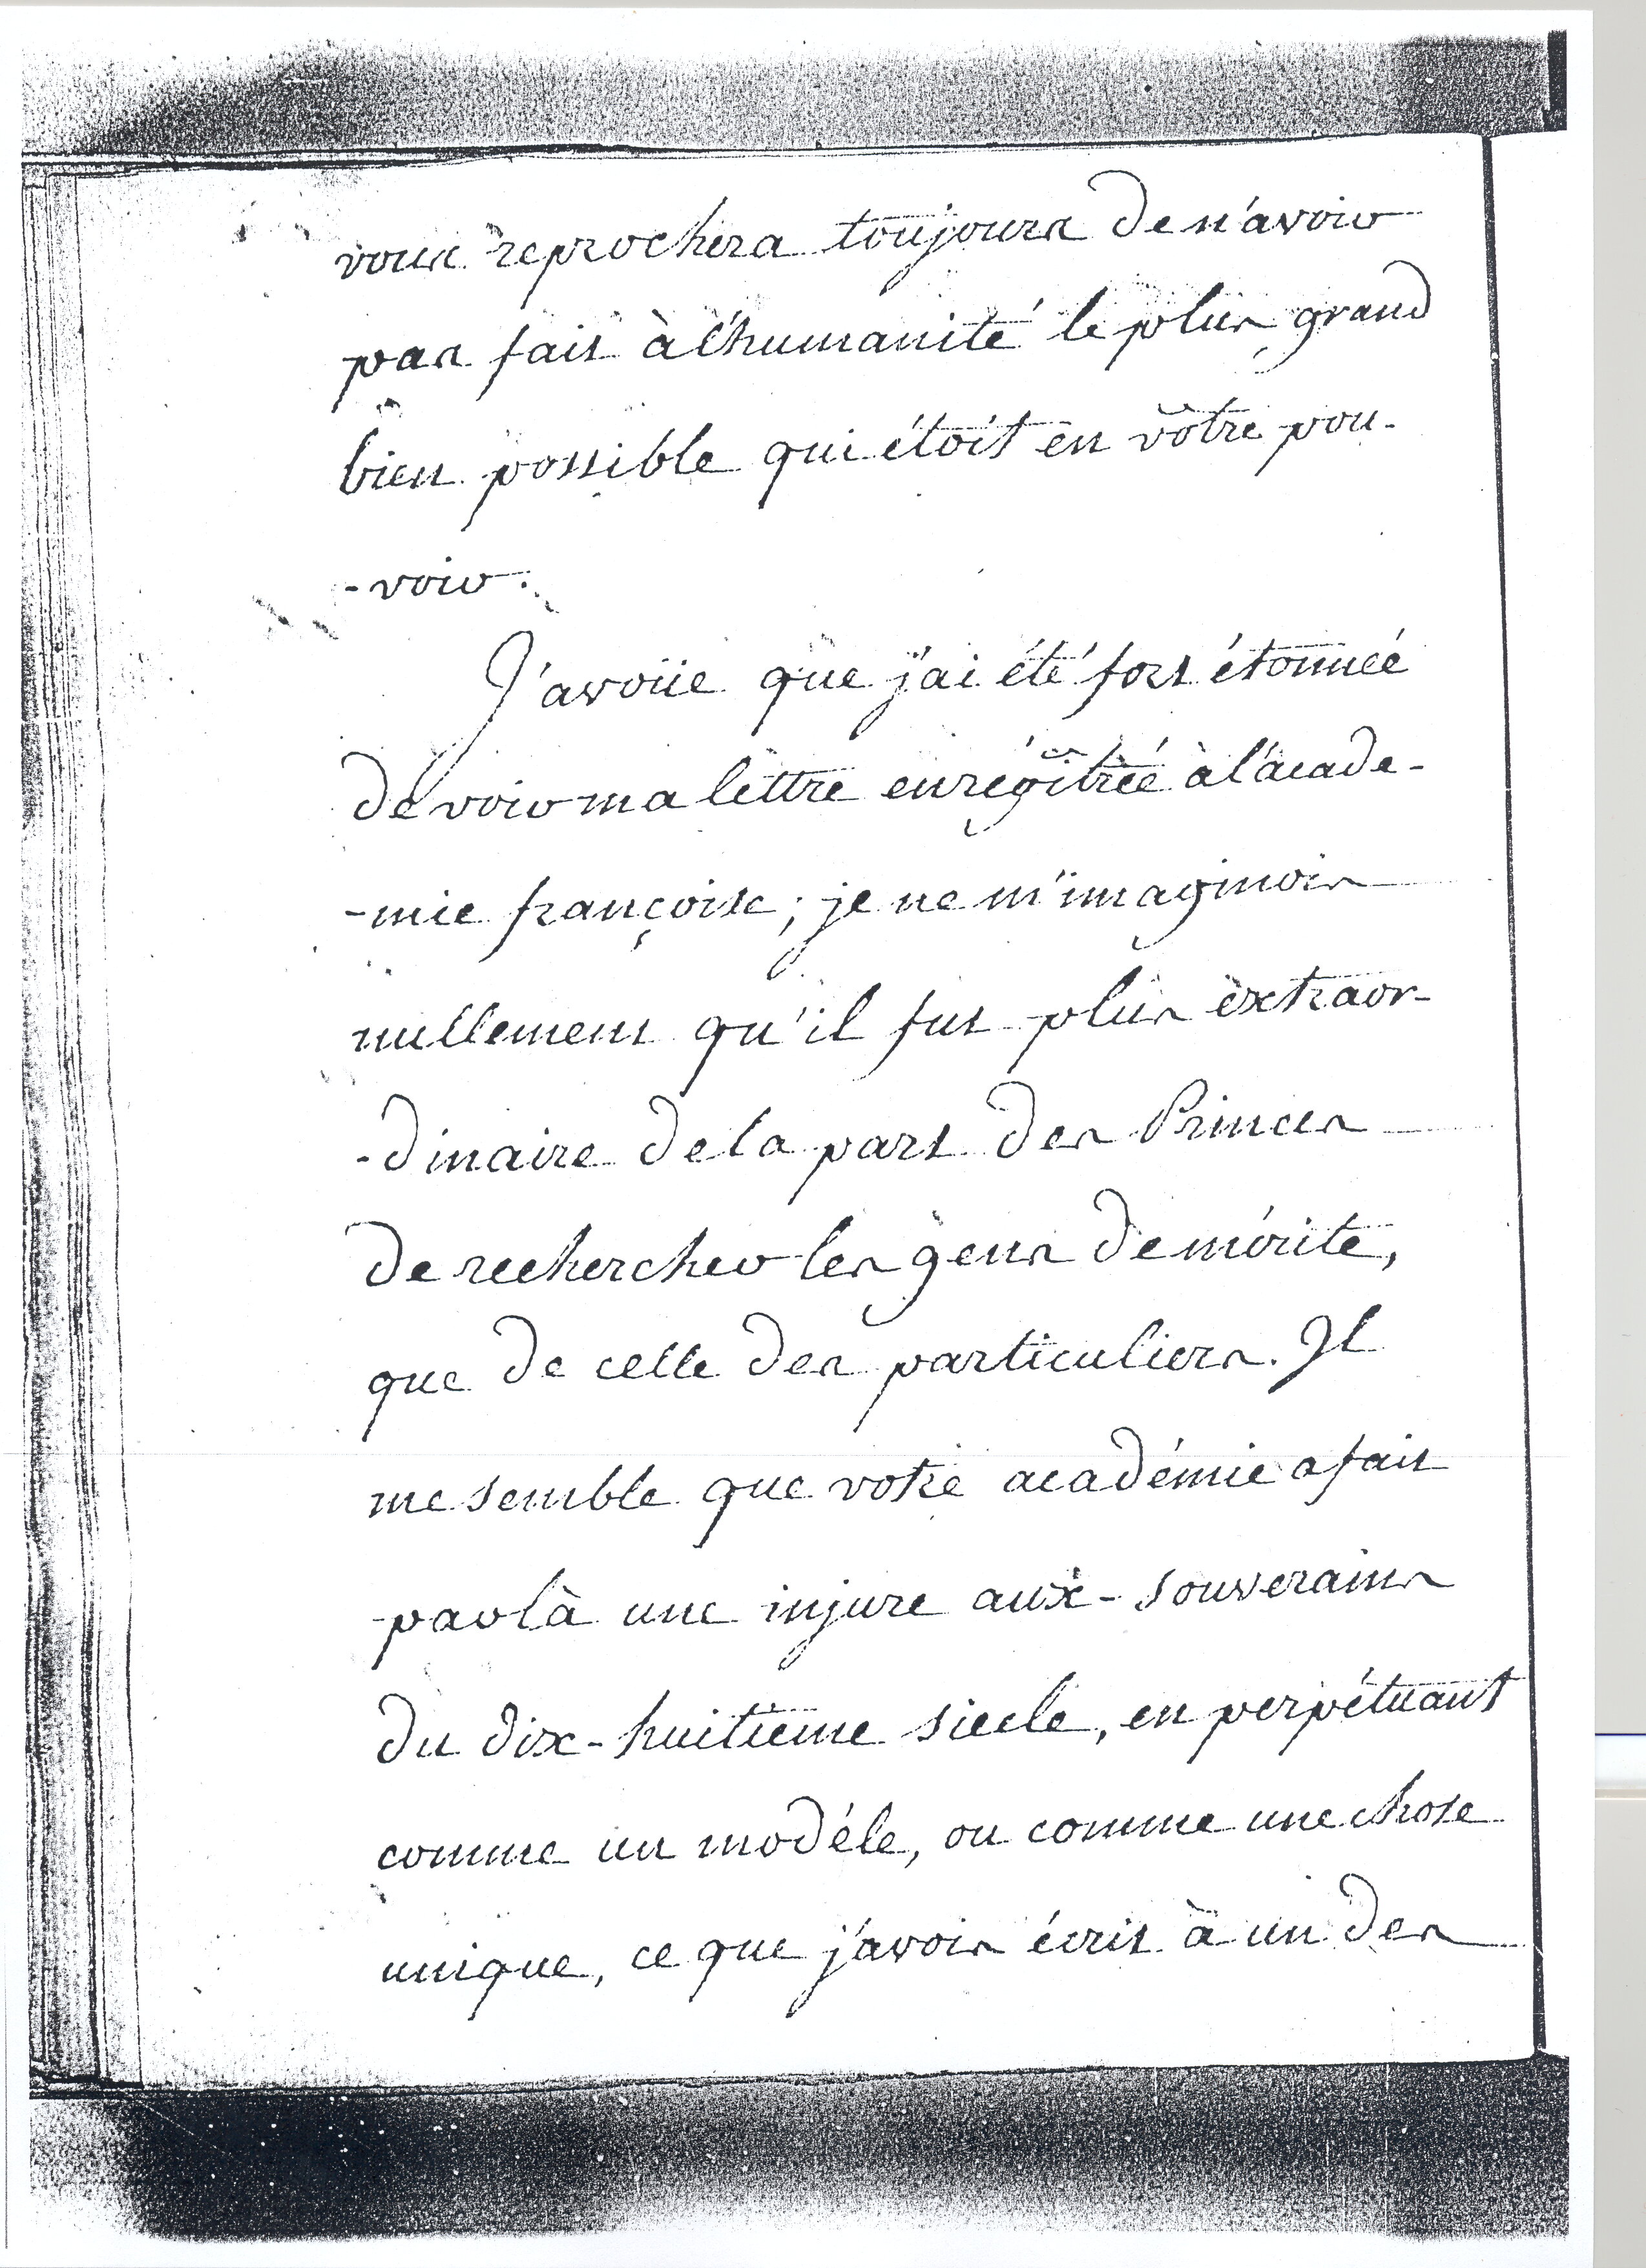 vous reprochera toujours de n'avoir
pas fait à l'humanité le plus grand
bien possible qui étoit en vôtre pou-
-voir.
J'avoüe que j'ai été fort étonnée
de voir ma lettre enrégîtrée à l'acade-
-mie françoise; je ne m'imaginois
nullement qu'il fut plus extraor-
-dinaire de la part des Princes
de rechercher les gens de mérite,
que de celle des particuliers. Il
me semble que votre académie a fait
par là une injure aux-souverains
du dix-huitième siecle, en perpétuant
comme un modéle, ou comme une chose
unique, ce que j'avois écrit à un des